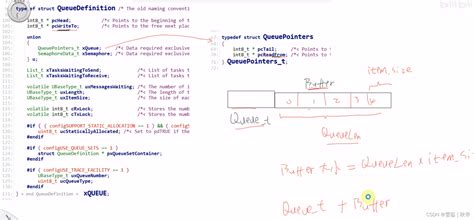 typedef struct QueueDefinition /* The old naming convent
int8_t * pcHead; /*< Points to the beginning of t
int8_t * pcWriteTo; /*< Points to the free next plac
union
{
QueuePointers_t xQueue; /*< Data required exclusive
SemaphoreData_t xSemaphore; /*< Data required exclusi
} u;
List_t xTasksWaitingToSend; /*< List of tasks t
List_t xTasksWaitingToReceive; /*< List of tasks t
volatile UBaseType_t uxMessagesWaiting; /*< The number of i
UBaseType_t uxLength; /*< The length of t
UBaseType_t uxItemSize; /*< The size of eac
volatile int8_t cRxLock; /*< Stores the numb
volatile int8_t cTxLock; /*< Stores the numb
#if ( ( configSUPPORT_STATIC_ALLOCATION == 1 ) && ( configSU
uint8_t ucStaticallyAllocated; /*< Set to pdTRUE if the
#endif
#if ( configUSE_QUEUE_SETS == 1 )
struct QueueDefinition * pxQueueSetContainer;
#endif
#if ( configUSE_TRACE_FACILITY == 1 )
UBaseType_t uxQueueNumber;
uint8_t ucQueueType;
#endif
xQUEUE;
typedef struct QueuePointers
{
int8_t * pcTail; /*< Points t
int8_t * pcReadFrom; /*< Points t
} QueuePointers_t;
Buffer
item size
0 1 2 3 4
Queue_t
QueueLen
= QueueLen x item_si
Queue_t + Buffer